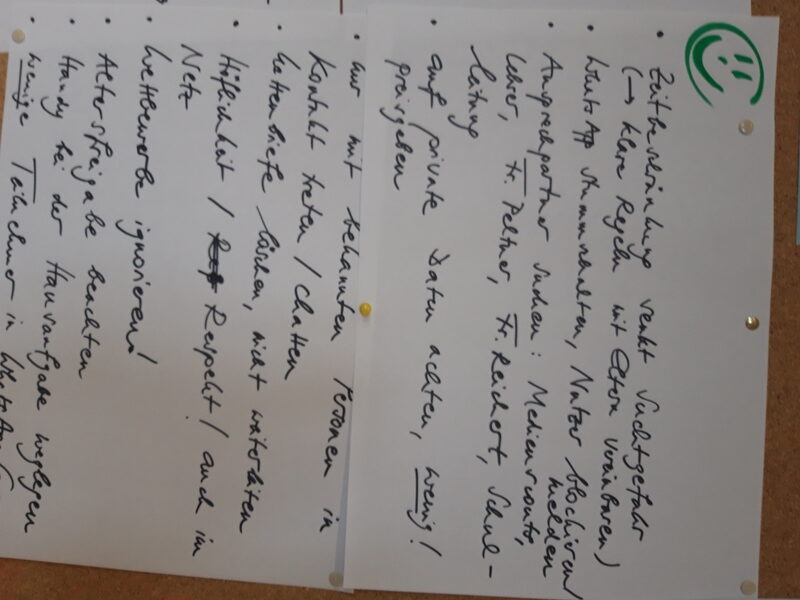 • Zeitbeschränkung senkt Suchtgefahr
(→ klare Regeln mit Eltern vereinbaren)
• WhatsApp stummschalten, Nutzer blockieren/
melden
• Ansprechpartner suchen: Medienscouts,
Lehrer, Fr. Peltner, Fr. Reichert, Schul-
leitung
• auf private Daten achten, wenig!
preisgeben
• nur mit bekannten Personen in
Kontakt treten / chatten
• Kettenbriefe löschen, nicht weiterleiten
• Höflichkeit / Respekt! auch im
Netz
• Wettbewerbe ignorieren!
• Altersfreigabe beachten
• Handy bei der Hausaufgabe weglegen
• wenige Teilnehmer in